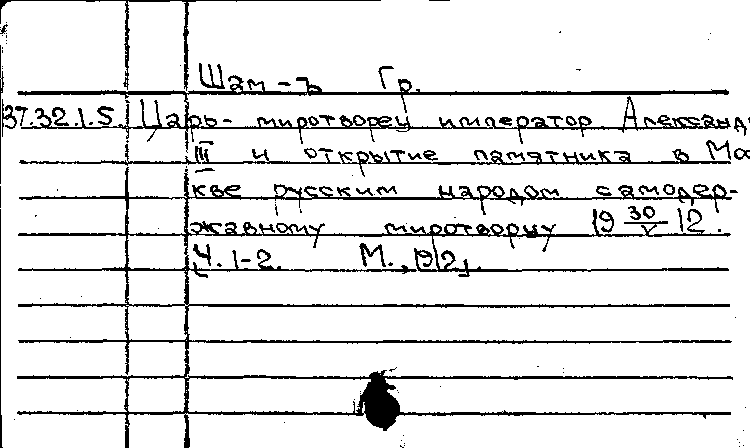 Шам-ъ Гр.
37.32.1.5. Царь-миротворец император Александ
III и открытие памятника в Мос
кве русским народом самодер-
жавному миротворцу 19 30/V 12.
Ч. 1-2. М., 1912.